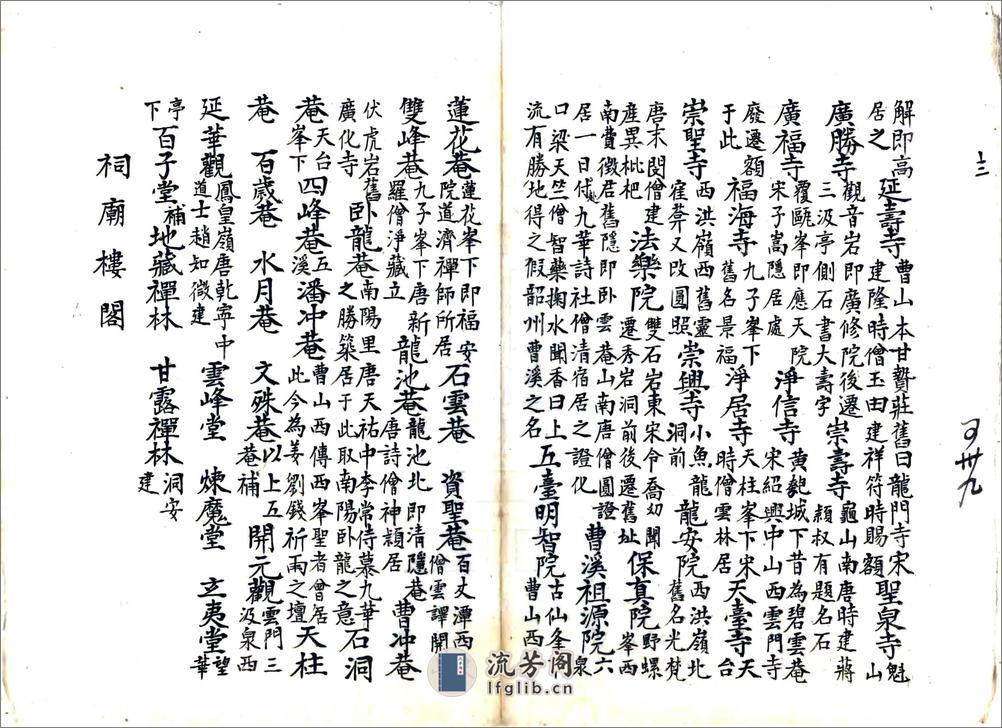 解即高居之延壽寺曹山本甘贄莊舊曰龍門寺宋建隆時僧玉田建祥符時賜額聖泉寺魁山
廣勝寺觀音岩即廣修院後遷三汲亭側石書大壽字崇壽寺龜山南唐時建蔣穎叔有題名石
廣福寺覆甌峯即應天院宋子嵩隱居處淨信寺黄匏城下昔為碧雲菴宋紹興中山西雲門寺
廢遷額于此福海寺九子峯下舊名景福淨居寺天柱峯下宋時僧雲林居天臺寺天台
崇聖寺西洪嶺西舊靈窪葬又改圓照崇興寺小魚龍洞前龍安院西洪嶺北舊名光梵
唐末閔僧建產異枇杷法樂院雙石岩東宋令喬幼聞遷秀岩洞前後遷舊址保真院野螺峯西
南費徵君舊隱即卧雲菴山南唐僧圓證居一日付九華詩社僧清宿居之證化曹溪祖源院六泉
口梁天竺僧智藥掬水聞香曰上流有勝地得之假韶州曹溪之名五臺明智院古仙峯曹山西
十三
蓮花菴蓮花峯下即福安院道濟禪師所居石雲菴 資聖菴百丈潭西僧雲譯開
雙峰菴九子峯下唐新羅僧淨藏立龍池菴龍池北即清隱菴唐詩僧神穎居曹冲菴
伏虎岩舊廣化寺卧龍菴南陽里唐天祐中李常侍慕九華之勝築居于此取南陽卧龍之意石洞
菴天台峯下四峰菴五溪潘冲菴曹山西傳西峯聖者曾居此今為姜劉錢祈雨之壇天柱
菴 百歲菴 水月菴 文殊菴以上五菴補開元觀雲門三汲泉西
延華觀鳳皇嶺唐乾寧中道士趙知微建雲峰堂 煉魔堂 立夷堂望華
亭下百子堂補地藏禪林 甘露禪林洞安建
祠廟樓閣
流芳阁
lfglib.cn